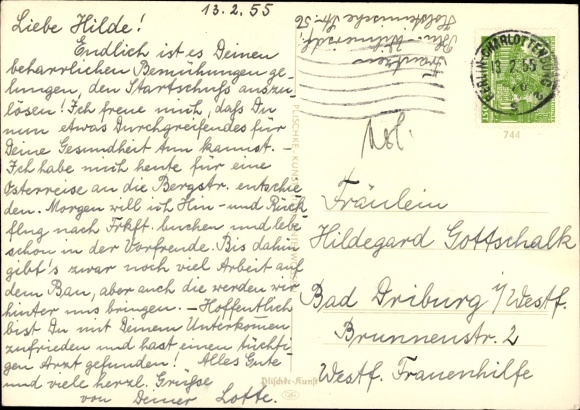 13.2.55
Liebe Hilde!
Endlich ist es Deinen
beharrlichen Bemühungen ge-
lungen, den Startschuss auszu-
lösen! Ich freue mich, daß Du
nun etwas Durchgreifendes für
Deine Gesundheit tun kannst. -
Ich habe mich heute für eine
Osterreise an die Bergstr. entschie-
den. Morgen will ich Hin- und Rück-
flug nach Frkft. buchen und lebe
schon in der Vorfreude. Bis dahin
gibt's zwar noch viel Arbeit auf
dem Bau, aber auch die werden wir
hinter uns bringen. - Hoffentlich
bist Du mit Deinem Unterkommen
zufrieden und hast einen tüchti-
gen Arzt gefunden! Alles Gute
und viele herzl. Grüsse
von Deiner Lotte.
Bln-Wilmersdf.
Holsteinische Str.
BERLIN-CHARLOTTENBURG 2
13.2.55
744
Abs.
Fräulein
Hildegard Gottschalk
Bad Driburg i/Westf.
Brunnenstr. 2
Westf. Frauenhilfe
Plischke-Kunst